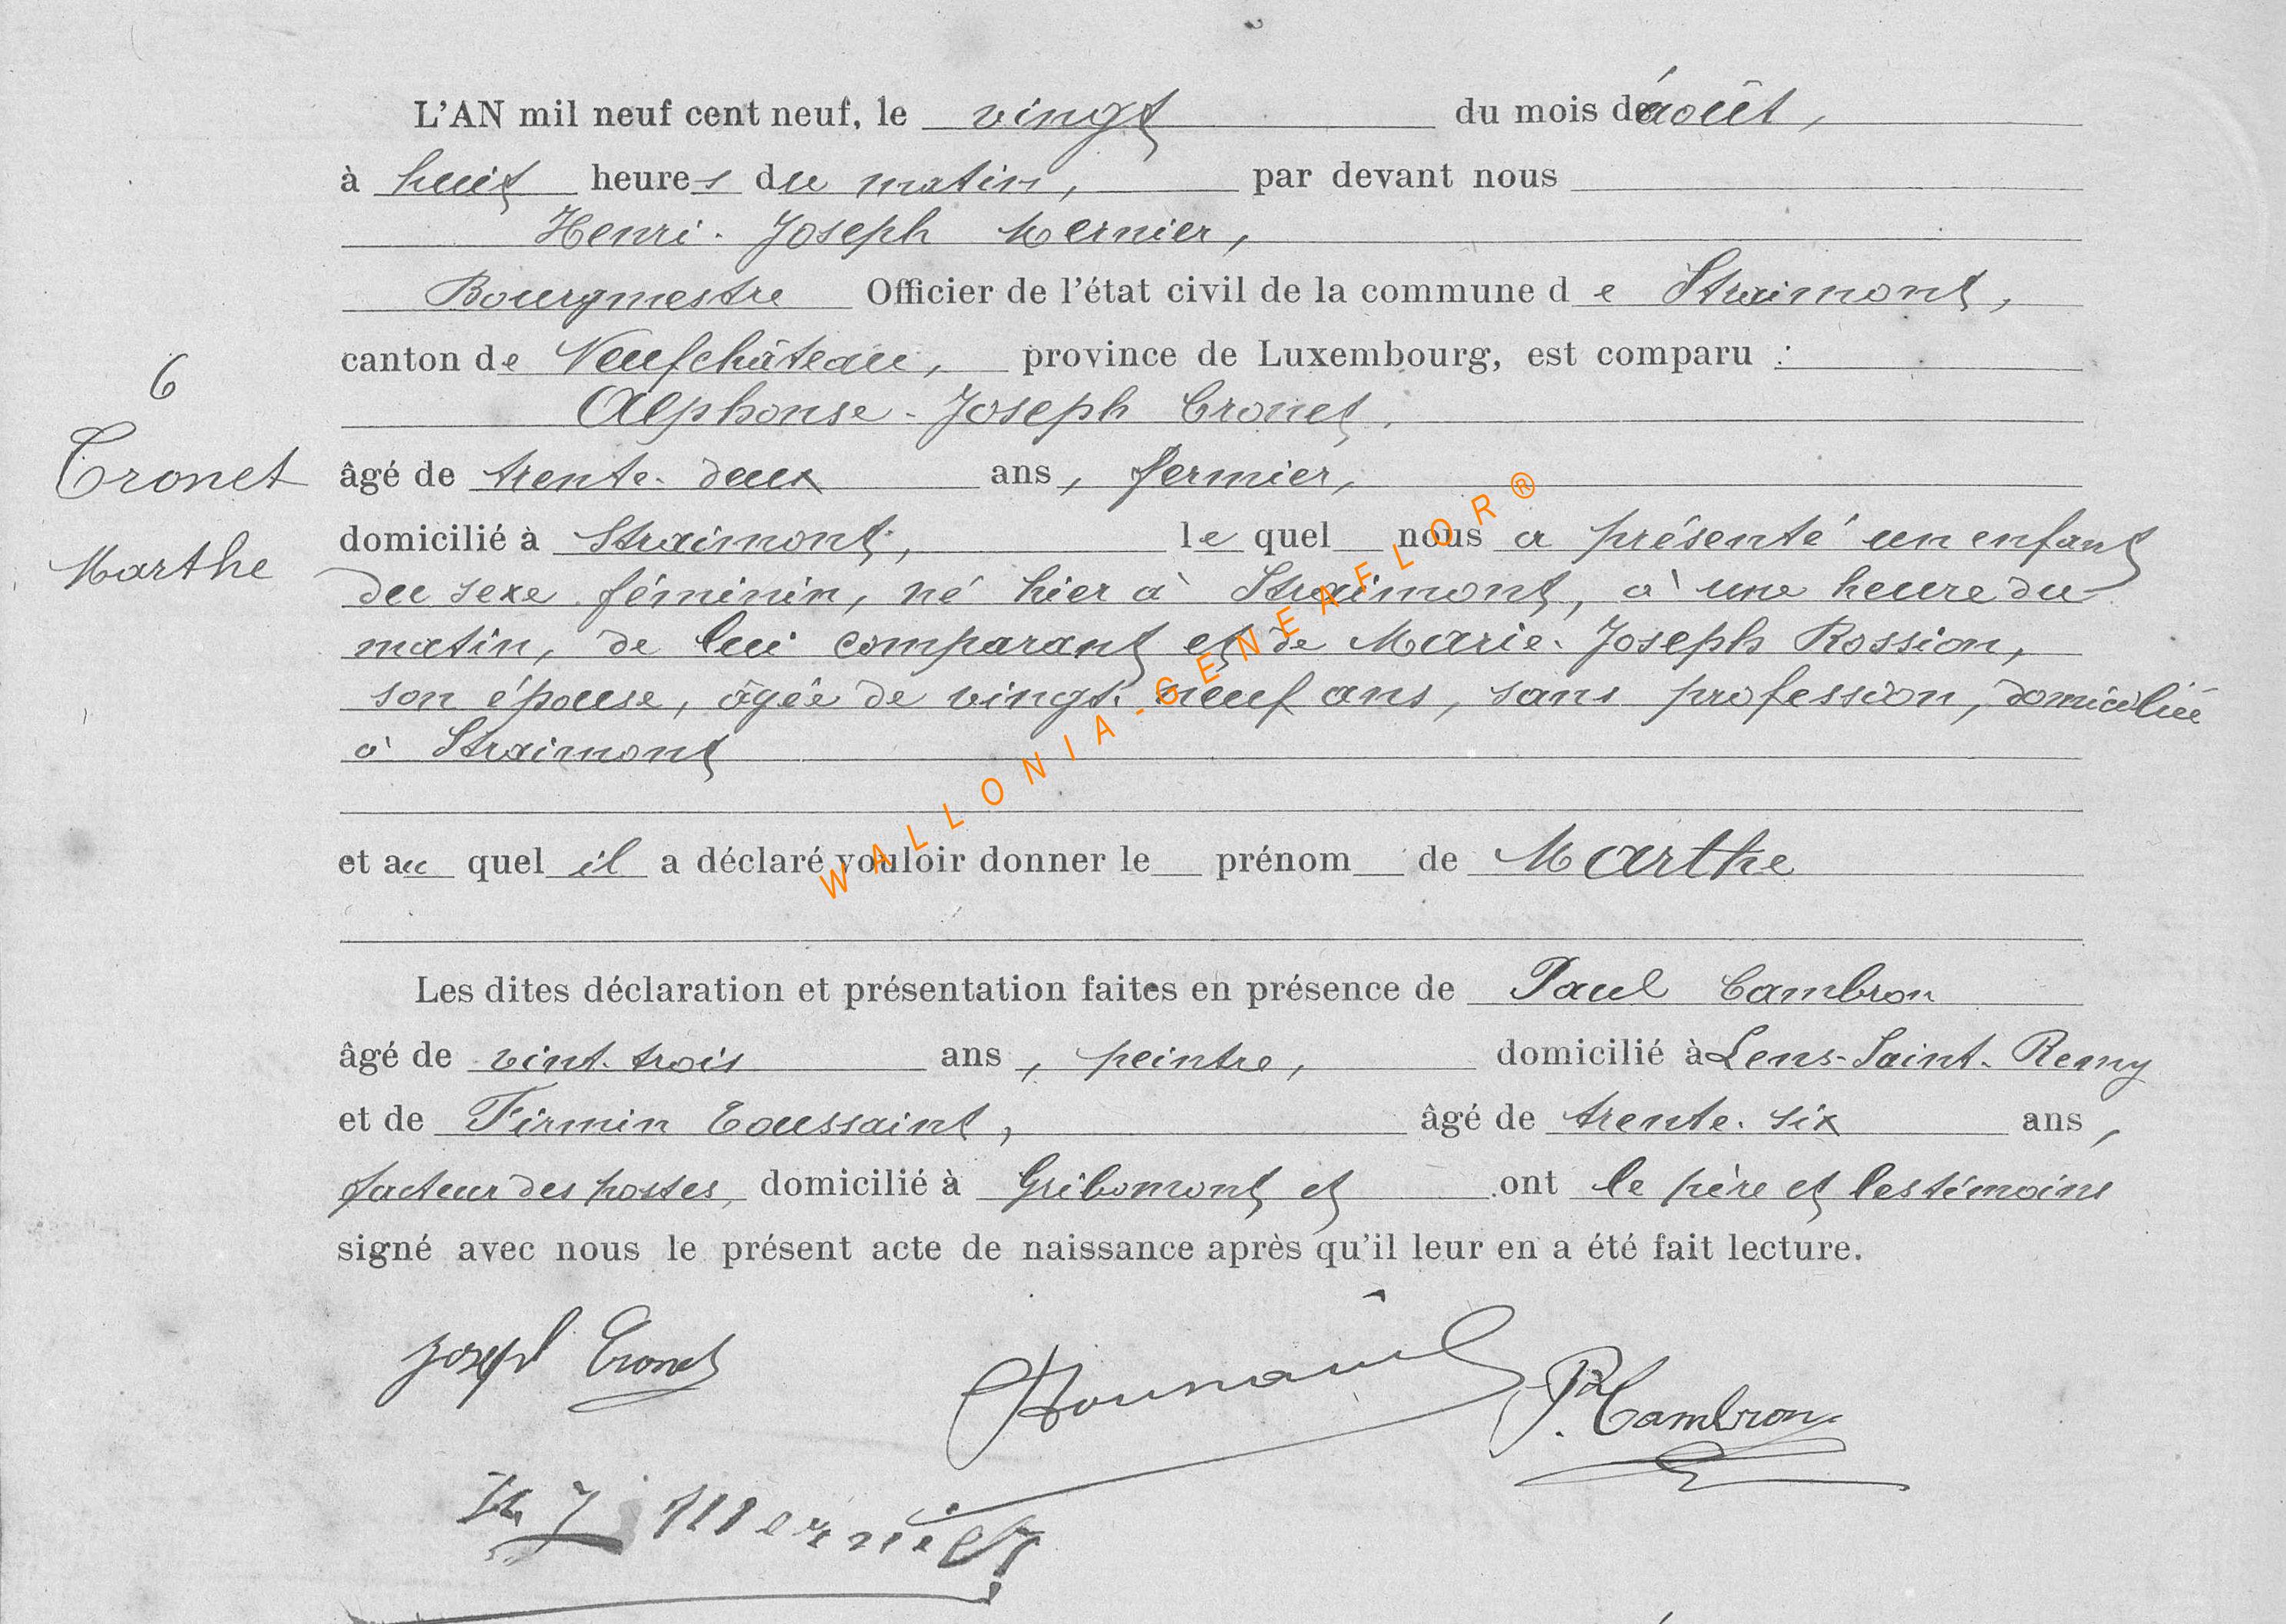 L'AN mil neuf cent neuf, le vingt du mois de août,
à huit heures du matin, par devant nous
Henri-Joseph Mernier,
Bourgmestre Officier de l'état civil de la commune de Straimont,
canton de Neufchâteau, province de Luxembourg, est comparu :
Alphonse-Joseph Cronet,
6
Cronet
Marthe
âgé de trente-deux ans, fermier,
domicilié à Straimont, lequel nous a présenté un enfant
du sexe féminin, né hier à Straimont, à une heure du
matin, de lui comparant et de Marie-Joseph Rossion,
son épouse, âgée de vingt-neuf ans, sans profession, domiciliée
à Straimont
et au quel il a déclaré vouloir donner le prénom de Marthe
Les dites déclaration et présentation faites en présence de Paul Cambron
âgé de vint-trois ans, peintre, domicilié à Lens-Saint-Remy
et de Firmin Toussaint, âgé de trente-six ans,
facteur des postes, domicilié à Gribomont et ont le père et les témoins
signé avec nous le présent acte de naissance après qu'il leur en a été fait lecture.
Joseph Cronet
Toussaint
P. Cambron
H J Mernier
WALLONIA-GENEAFLOR®